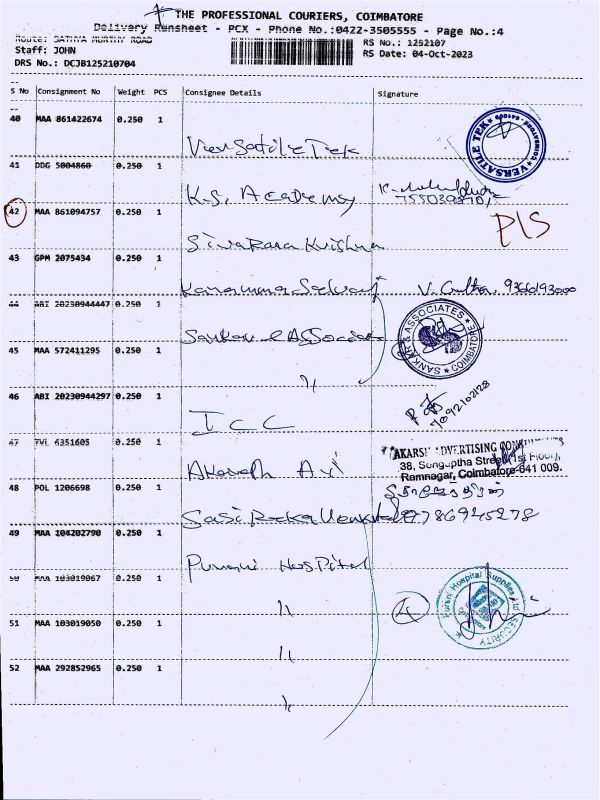 THE PROFESSIONAL COURIERS, COIMBATORE
Delivery Runsheet - PCX - Phone No.:0422-3505555 - Page No.:4
Route: SATHYA MURTHY ROAD
RS No.: 1252107
Staff: JOHN
RS Date: 04-Oct-2023
DRS No.: DCJB125210704
S No Consignment No Weight PCS Consignee Details Signature
40 MAA 861422674 0.250 1
Versatile Tek
VERSATILE TEK
41 DDG 5004860 0.250 1
K.S. Academy
42 MAA 861094757 0.250 1
P/S
Sivarama Krishna
43 GPM 2075434 0.250 1
44 ABI 20230944447 0.250 1
Sankar & Associate
SANKAR & ASSOCIATES COIMBATORE
45 MAA 572411295 0.250 1
"
46 ABI 20230944297 0.250 1
ICC
47 TVL 6351605 0.250 1
AKARSH ADVERTISING
38, Senguptha Street (1st Floor),
Ramnagar, Coimbatore-641 009.
48 POL 1206698 0.250 1
49 MAA 104202790 0.250 1
Purani Hospital
50 MAA 103019067 0.250 1
"
4
Purani Hospital Supplies SECURITY
51 MAA 103019050 0.250 1
"
52 MAA 292852965 0.250 1
"